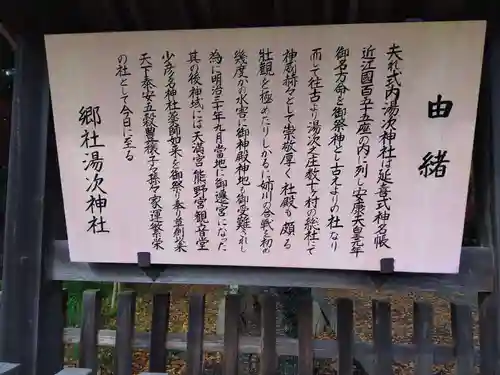 由緒
夫れ式内湯次神社は延喜式神名帳
近江國百五十五座の内に列し安康天皇元年
御名方命を御祭神と古よりの社なり
而して往古より湯次之庄数十ヶ村の総社にて
神剣赫々として崇敬厚く社殿も頗る
壮観を極めたりしかるに姉川の合戦を初め
幾度かの水害に御神殿神地も御受難されし
為に明治三十年九月当地に御遷宮になった
其の後神域には天満宮熊野宮観音堂
少彦名神社薬師如来を御祭り奉り爾来
天下泰安五穀豊穣子々孫々家運繁栄
の社として今日に至る
郷社湯次神社